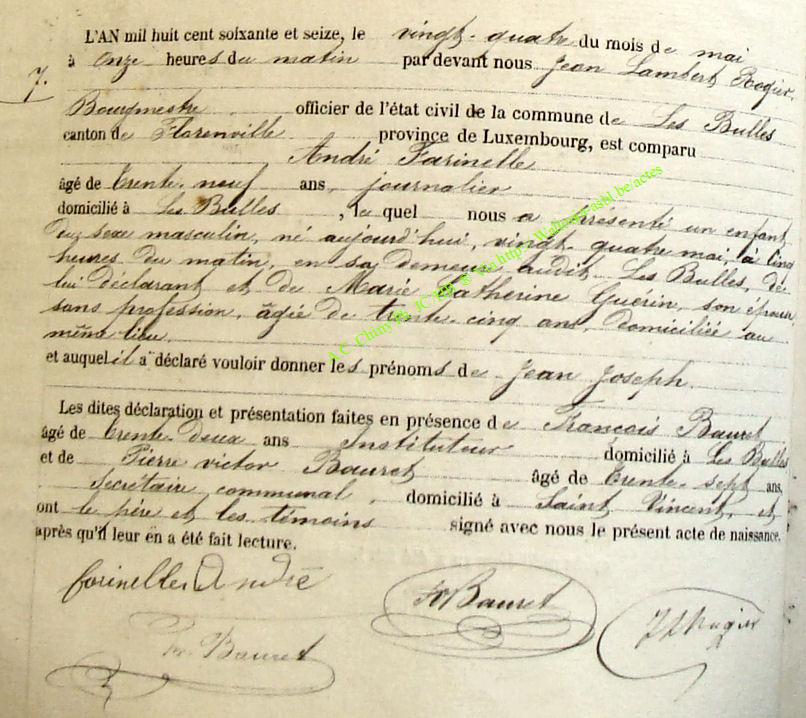 L'AN mil huit cent soixante et seize, le vingt-quatre du mois de mai
7. à onze heures du matin par devant nous Jean Lambert Rogier,
Bourgmestre officier de l'état civil de la commune de Les Bulles
canton de Florenville province de Luxembourg, est comparu
André Farinelle
âgé de trente-neuf ans, journalier
domicilié à Les Bulles, lequel nous a présenté un enfant
du sexe masculin, né aujourd'hui, vingt-quatre mai, à cinq
heures du matin, en sa demeure audit Les Bulles, de
lui déclarant et de Marie Catherine Guérin, son épouse
sans profession, âgée de trente-cinq ans, domiciliée au
même lieu.
et auquel il a déclaré vouloir donner les prénoms de Jean Joseph
Les dites déclaration et présentation faites en présence de François Bauret
âgé de trente-deux ans Instituteur domicilié à Les Bulles
et de Pierre victor Bauret âgé de trente-sept ans,
Secrétaire communal, domicilié à Saint Vincent, et
ont le père et les témoins signé avec nous le présent acte de naissance,
après qu'il leur en a été fait lecture.
farinelle André
Bauret
JLRogier
Bauret
A.C. Chiny